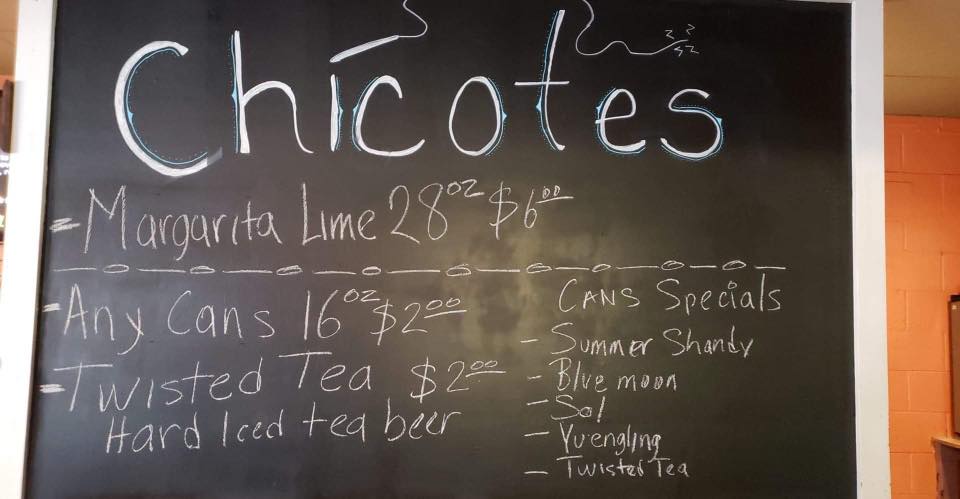 Chicotes
= Margarita Lime 28oz $6.00
= Any Cans 16oz $2.00
= Twisted Tea $2.00
Hard Iced tea beer
CANS Specials
- Summer Shandy
- Blue moon
- Sol
- Yuengling
- Twisted Tea